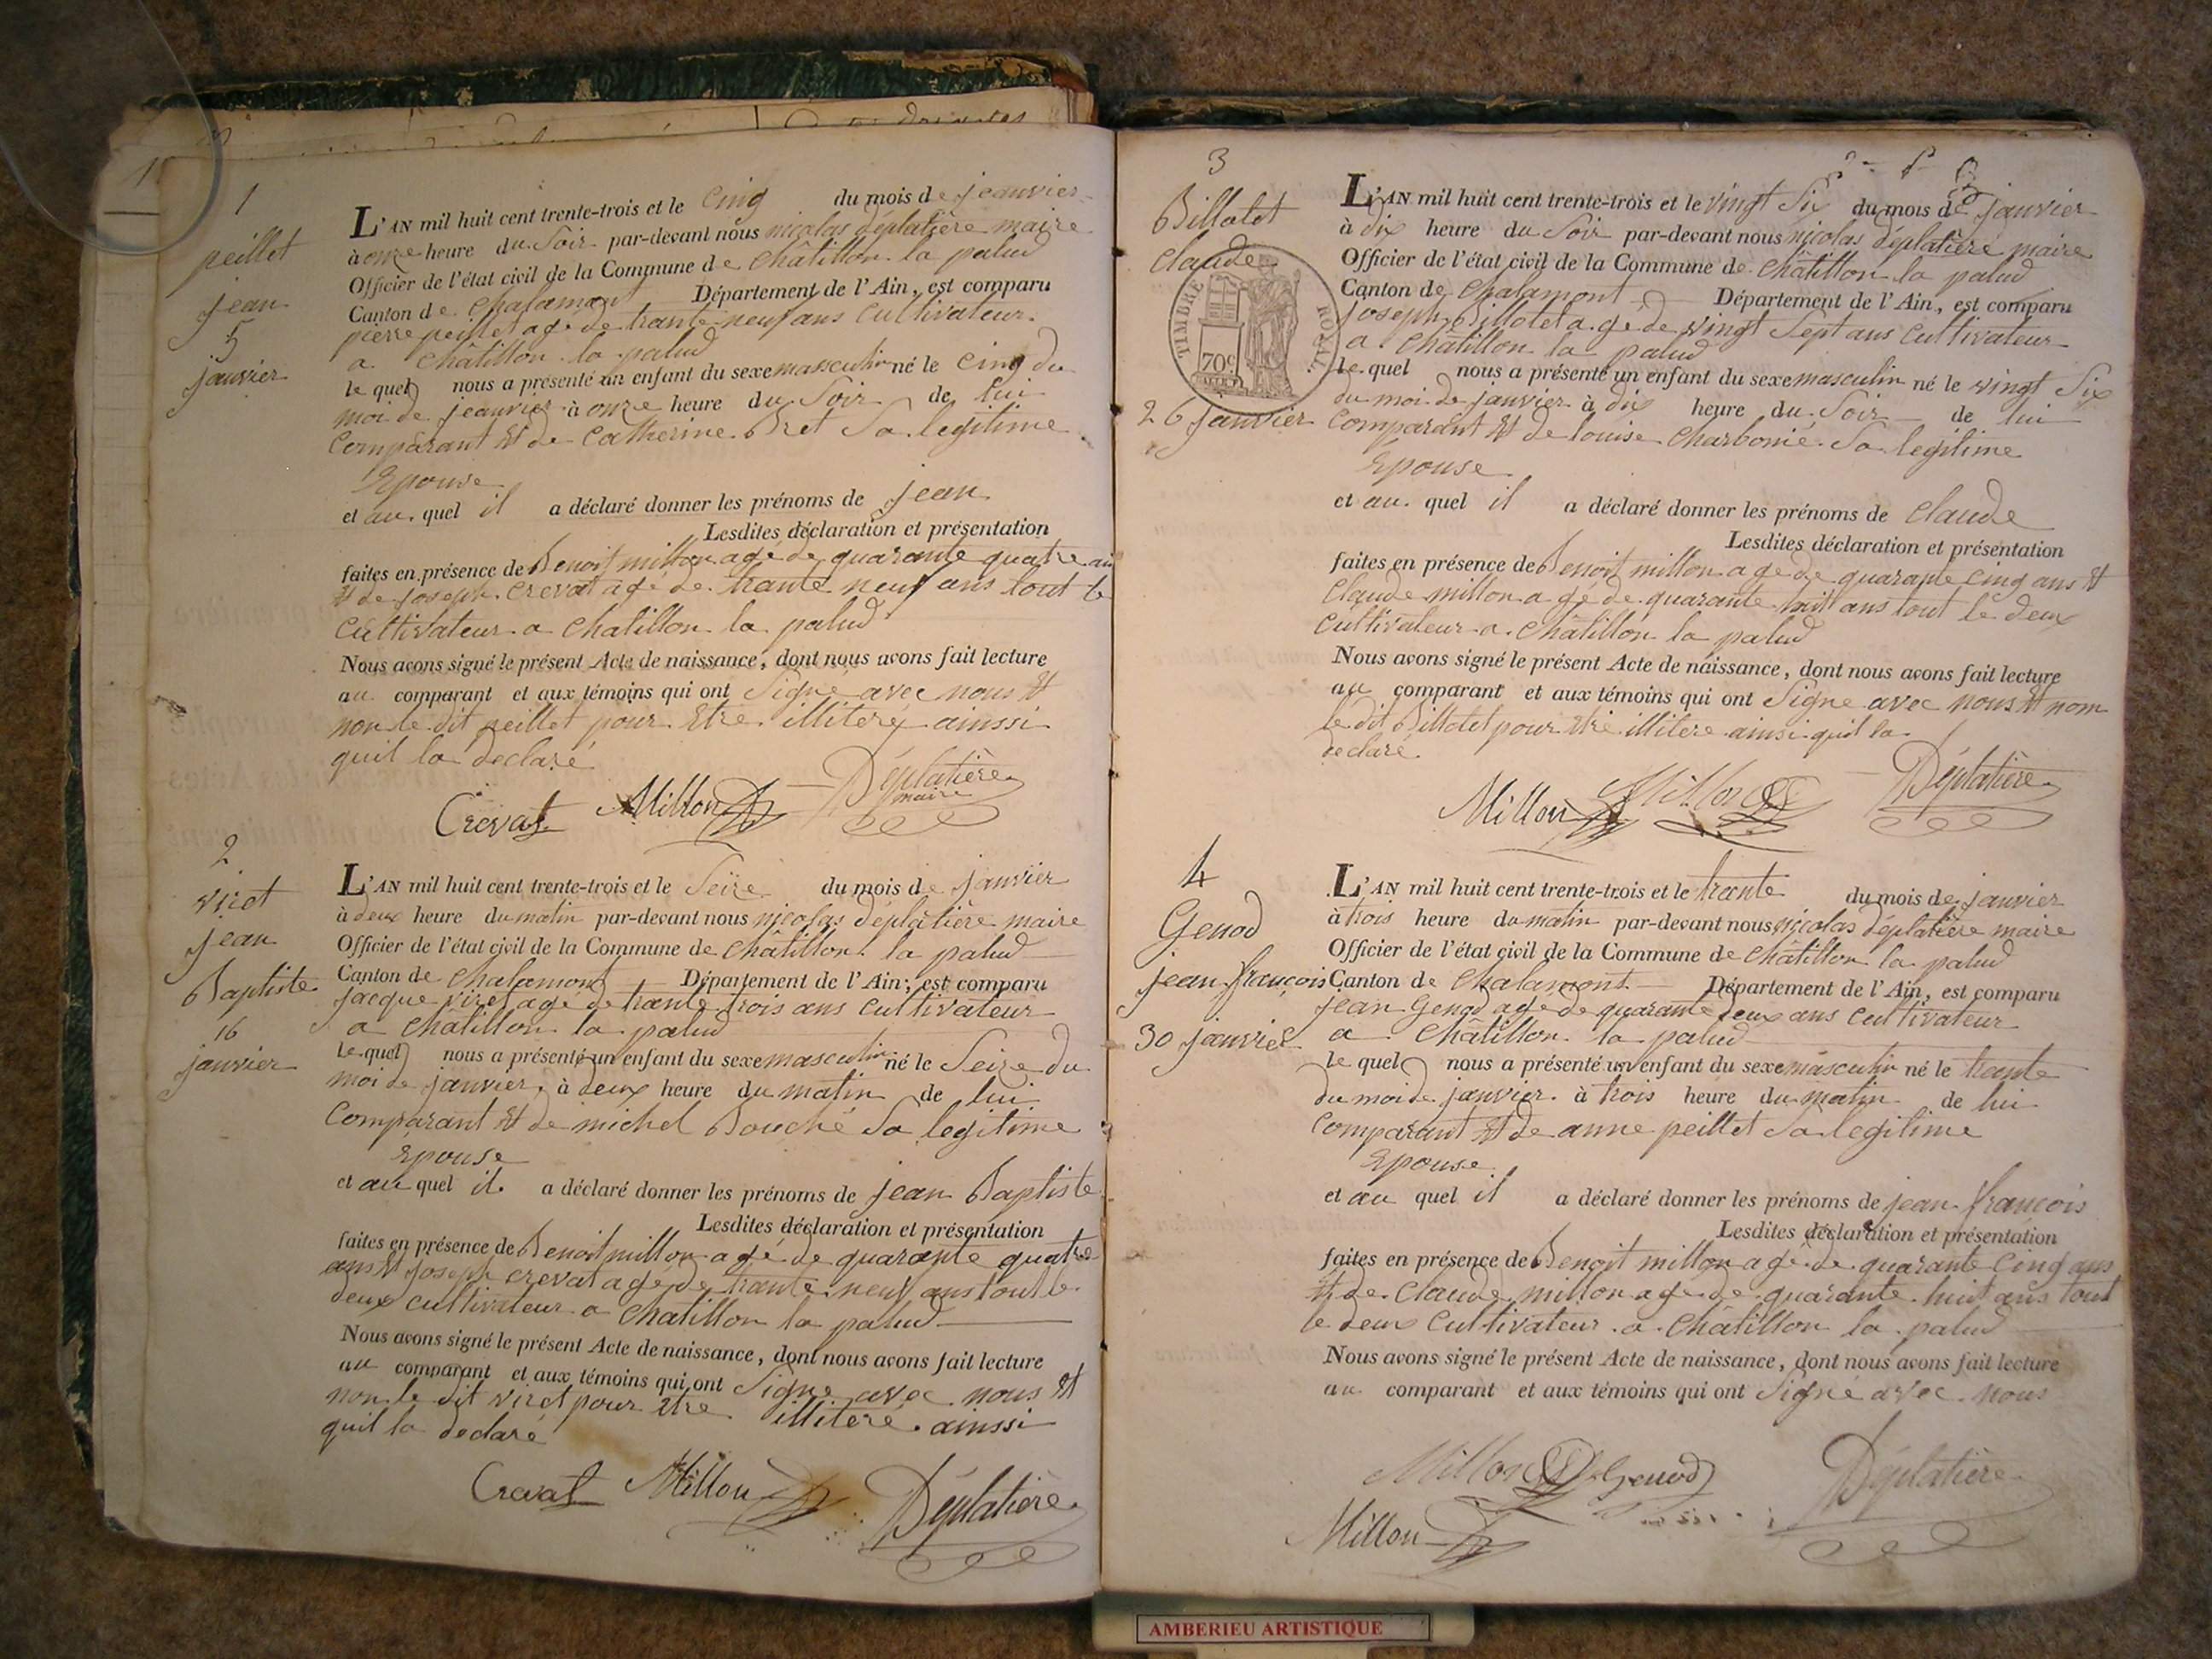 1
1
peillet
jean
5
janvier
L'AN mil huit cent trente-trois et le cinq du mois de jeanvier
à onze heure du Soir par-devant nous nicolas déplatière maire
Officier de l'état civil de la Commune de Châtillon la palud
Canton de Chalamont Département de l'Ain, est comparu
pierre peillet agé de trante neuf ans Cultivateur
a Châtillon la palud
le quel nous a présenté un enfant du sexe masculin né le Cinq du
moi de jeanvier à onze heure du Soir de lui
Comparant Et de Catherine Bret Sa legitime
Epouse
et au quel il a déclaré donner les prénoms de jean
Lesdites déclaration et présentation
faites en présence de Benoit millon agé de quarante quatre ans
Et de joseph Crevat agé de trante neuf ans tout le
Cultivateur a Chatillon la palud
Nous avons signé le présent Acte de naissance, dont nous avons fait lecture
au comparant et aux témoins qui ont Signé avec nous Et
non le dit peillet pour Etre illiteré ainssi
quil la declaré
Crevat Millon Déplatière
maire
2
viret
jean
Baptiste
16
janvier
L'AN mil huit cent trente-trois et le Seize du mois de janvier
à deux heure du matin par-devant nous nicolas déplatière maire
Officier de l'état civil de la Commune de Châtillon la palud
Canton de Chalamont Département de l'Ain, est comparu
jacque viret agé de trante trois ans Cultivateur
a Châtillon la palud
le quel nous a présenté un enfant du sexe masculin né le Seize du
moi de janvier à deux heure du matin de lui
Comparant Et de michel Bouché Sa legitime
Epouse
et au quel il a déclaré donner les prénoms de jean Baptiste
Lesdites déclaration et présentation
faites en présence de Benoit millon agé de quarante quatre
ans Et joseph crevat agé de trante neuf ans tout le
deux cultivateur a Chatillon la palud
Nous avons signé le présent Acte de naissance, dont nous avons fait lecture
au comparant et aux témoins qui ont Signe avec nous Et
non le dit viret pour Etre illiteré ainssi
quil la declaré
Crevat Millon Déplatière
3
Billotet
Claude
TIMBRE ROYAL
70c
26 janvier
L'AN mil huit cent trente-trois et le vingt Six du mois de janvier
à dix heure du Soir par-devant nous nicolas déplatière maire
Officier de l'état civil de la Commune de Châtillon la palud
Canton de Chalamont Département de l'Ain, est comparu
joseph Billotet agé de vingt Sept ans Cultivateur
a Châtillon la palud
le quel nous a présenté un enfant du sexe masculin né le vingt Six
du moi de janvier à dix heure du Soir de lui
Comparant Et de louise Charbonié Sa legitime
Epouse
et au quel il a déclaré donner les prénoms de Claude
Lesdites déclaration et présentation
faites en présence de Benoit millon agé de quarante Cinq ans Et
Claude millon agé de quarante huit ans tout le deux
Cultivateur a Châtillon la palud
Nous avons signé le présent Acte de naissance, dont nous avons fait lecture
au comparant et aux témoins qui ont Signe avec nous Et nom
le dit Billotet pour Etre illitere ainsi quil la
declaré
Millon Millon Déplatière
4
Genod
jean françois
30 janvier
L'AN mil huit cent trente-trois et le trante du mois de janvier
à trois heure du matin par-devant nous nicolas déplatière maire
Officier de l'état civil de la Commune de Châtillon la palud
Canton de Chalamont Département de l'Ain, est comparu
jean Genod agé de quarante deux ans Cultivateur
a Châtillon la palud
le quel nous a présenté un enfant du sexe masculin né le trante
du moi de janvier à trois heure du matin de lui
Comparant Et de anne peillet Sa legitime
Epouse
et au quel il a déclaré donner les prénoms de jean françois
Lesdites déclaration et présentation
faites en présence de Benoit millon agé de quarante Cinq ans
Et de Claude millon agé de quarante huit ans tout
le deux Cultivateur a Châtillon la palud
Nous avons signé le présent Acte de naissance, dont nous avons fait lecture
au comparant et aux témoins qui ont Signé avec nous
Millon Genod Déplatière
Millon
AMBERIEU ARTISTIQUE